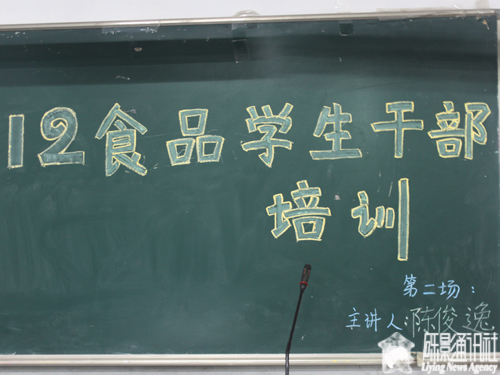 12食品学生干部
培训
第二场：
主讲人：陈俊逸
Living News Agency